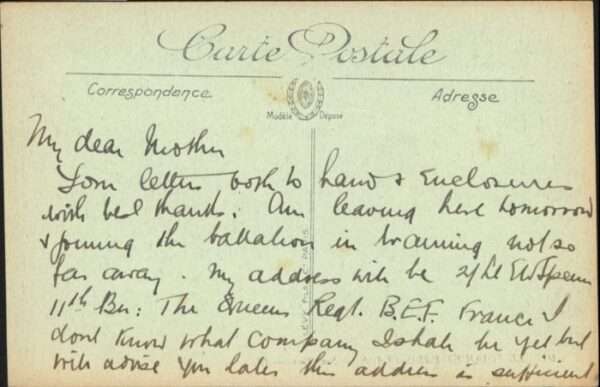 Carte Postale
Correspondance
Adresse
Modèle Déposé
My dear Mother
Your letters both to hand & Enclosures
with best thanks. Am leaving here tomorrow
& joining the battalion in training not so
far away. My address will be 2/Lt
11th Bn: The Queens Regt. B.E.F. France I
dont know what Company I shall be yet but
will advise you later this address is sufficient